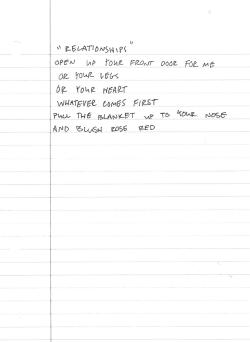 "RELATIONSHIPS"
OPEN UP YOUR FRONT DOOR FOR ME
OR YOUR LEGS
OR YOUR HEART
WHATEVER COMES FIRST
PULL THE BLANKET UP TO YOUR NOSE
AND BLUSH ROSE RED